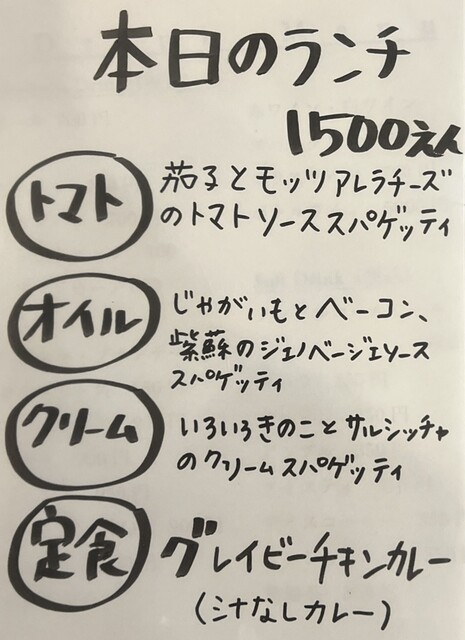 本日のランチ
1500えん
トマト
茄子とモッツアレラチーズ
のトマトソーススパゲッティ
オイル
じゃがいもとベーコン、
紫蘇のジェノベージェソース
スパゲッティ
クリーム
いろいろきのことサルシッチャ
のクリームスパゲッティ
定食
グレイビーチキンカレー
(汁なしカレー)